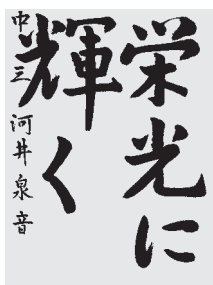 栄光に
輝く
中三 河井泉音